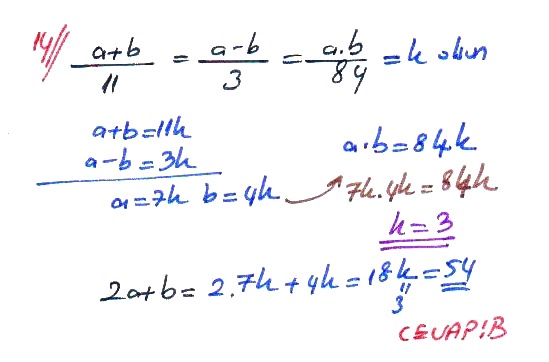 14// a+b/11 = a-b/3 = a.b/84 = k olsun
a+b=11k
a-b=3k
a=7k b=4k
a.b=84.k
7k.4k=84k
k=3
2a+b=2.7k+4k=18k=54
3
CEVAP:B